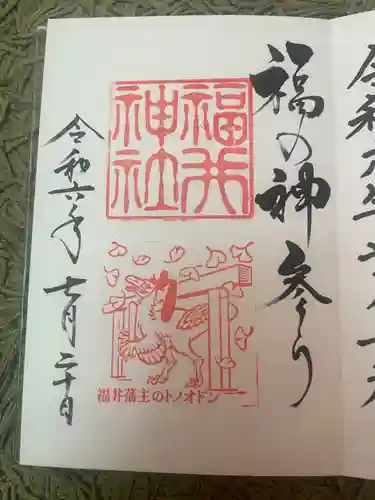 福の神参り
福井
神社
福井藩主のトノオドン
令和六年
十一月二十日